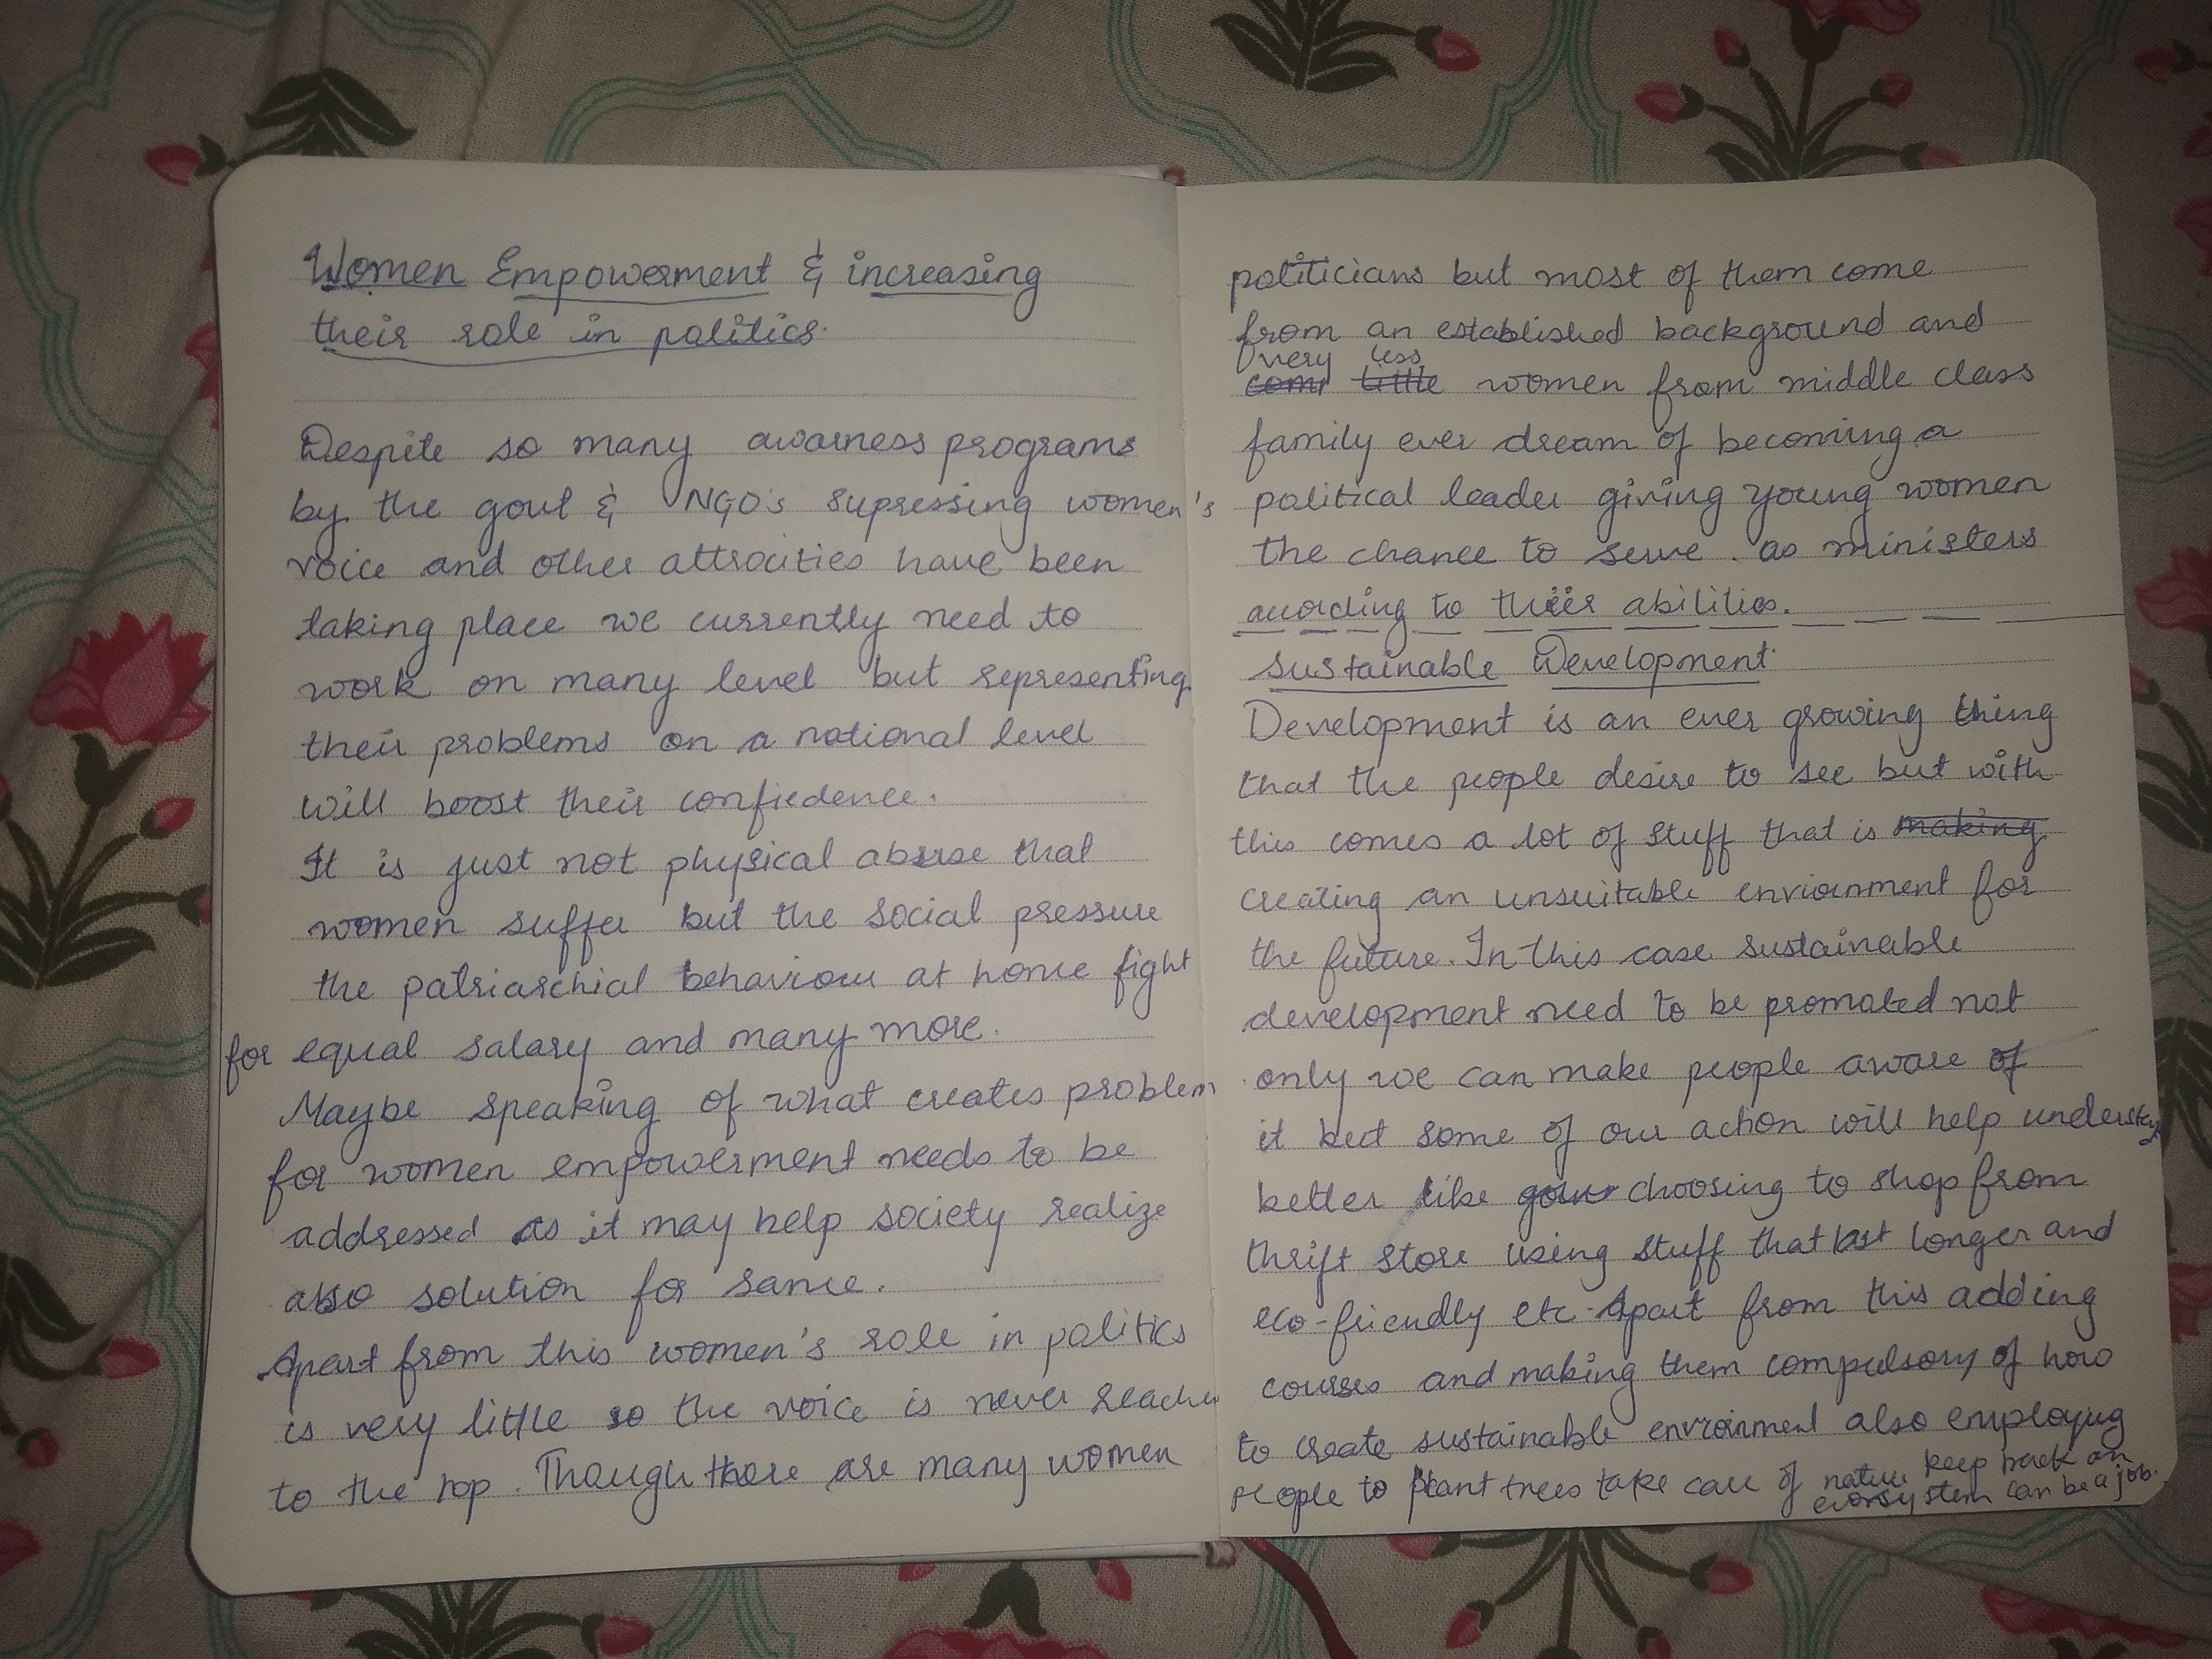 Women Empowerment & increasing
their role in politics.
Despite so many awarness programs
by the govt & NGO's supressing women's
voice and other attrocities have been
taking place we currently need to
work on many level but representing
their problems on a national level
will boost their confiedence.
It is just not physical abuse that
women suffer but the social pressure
the patriarchial behaviour at home fight
for equal salary and many more.
Maybe speaking of what creates problem
for women empowerment needs to be
addressed as it may help society realize
also solution for same.
Apart from this women's role in politics
is very little so the voice is never
to the top. Though there are many women
politicians but most of them come
from an established background and
very less
women from middle class
family ever dream of becoming a
political leader giving young women
the chance to serve as ministers
according to their abilities.
Sustainable Development
Development is an ever growing thing
that the people desire to see but with
this comes a lot of stuff that is making
creating an unsuitable enviornment for
the future. In this case sustainable
development need to be promoted not
only we can make people aware of
it but some of our action will help
better like choosing to shop from
thrift store using stuff that last longer and
eco-friendly etc. Apart from this adding
courses and making them compulsory of how
to create sustainable enviornment also employing
people to plant trees take care of nature keep track on
can be a job.